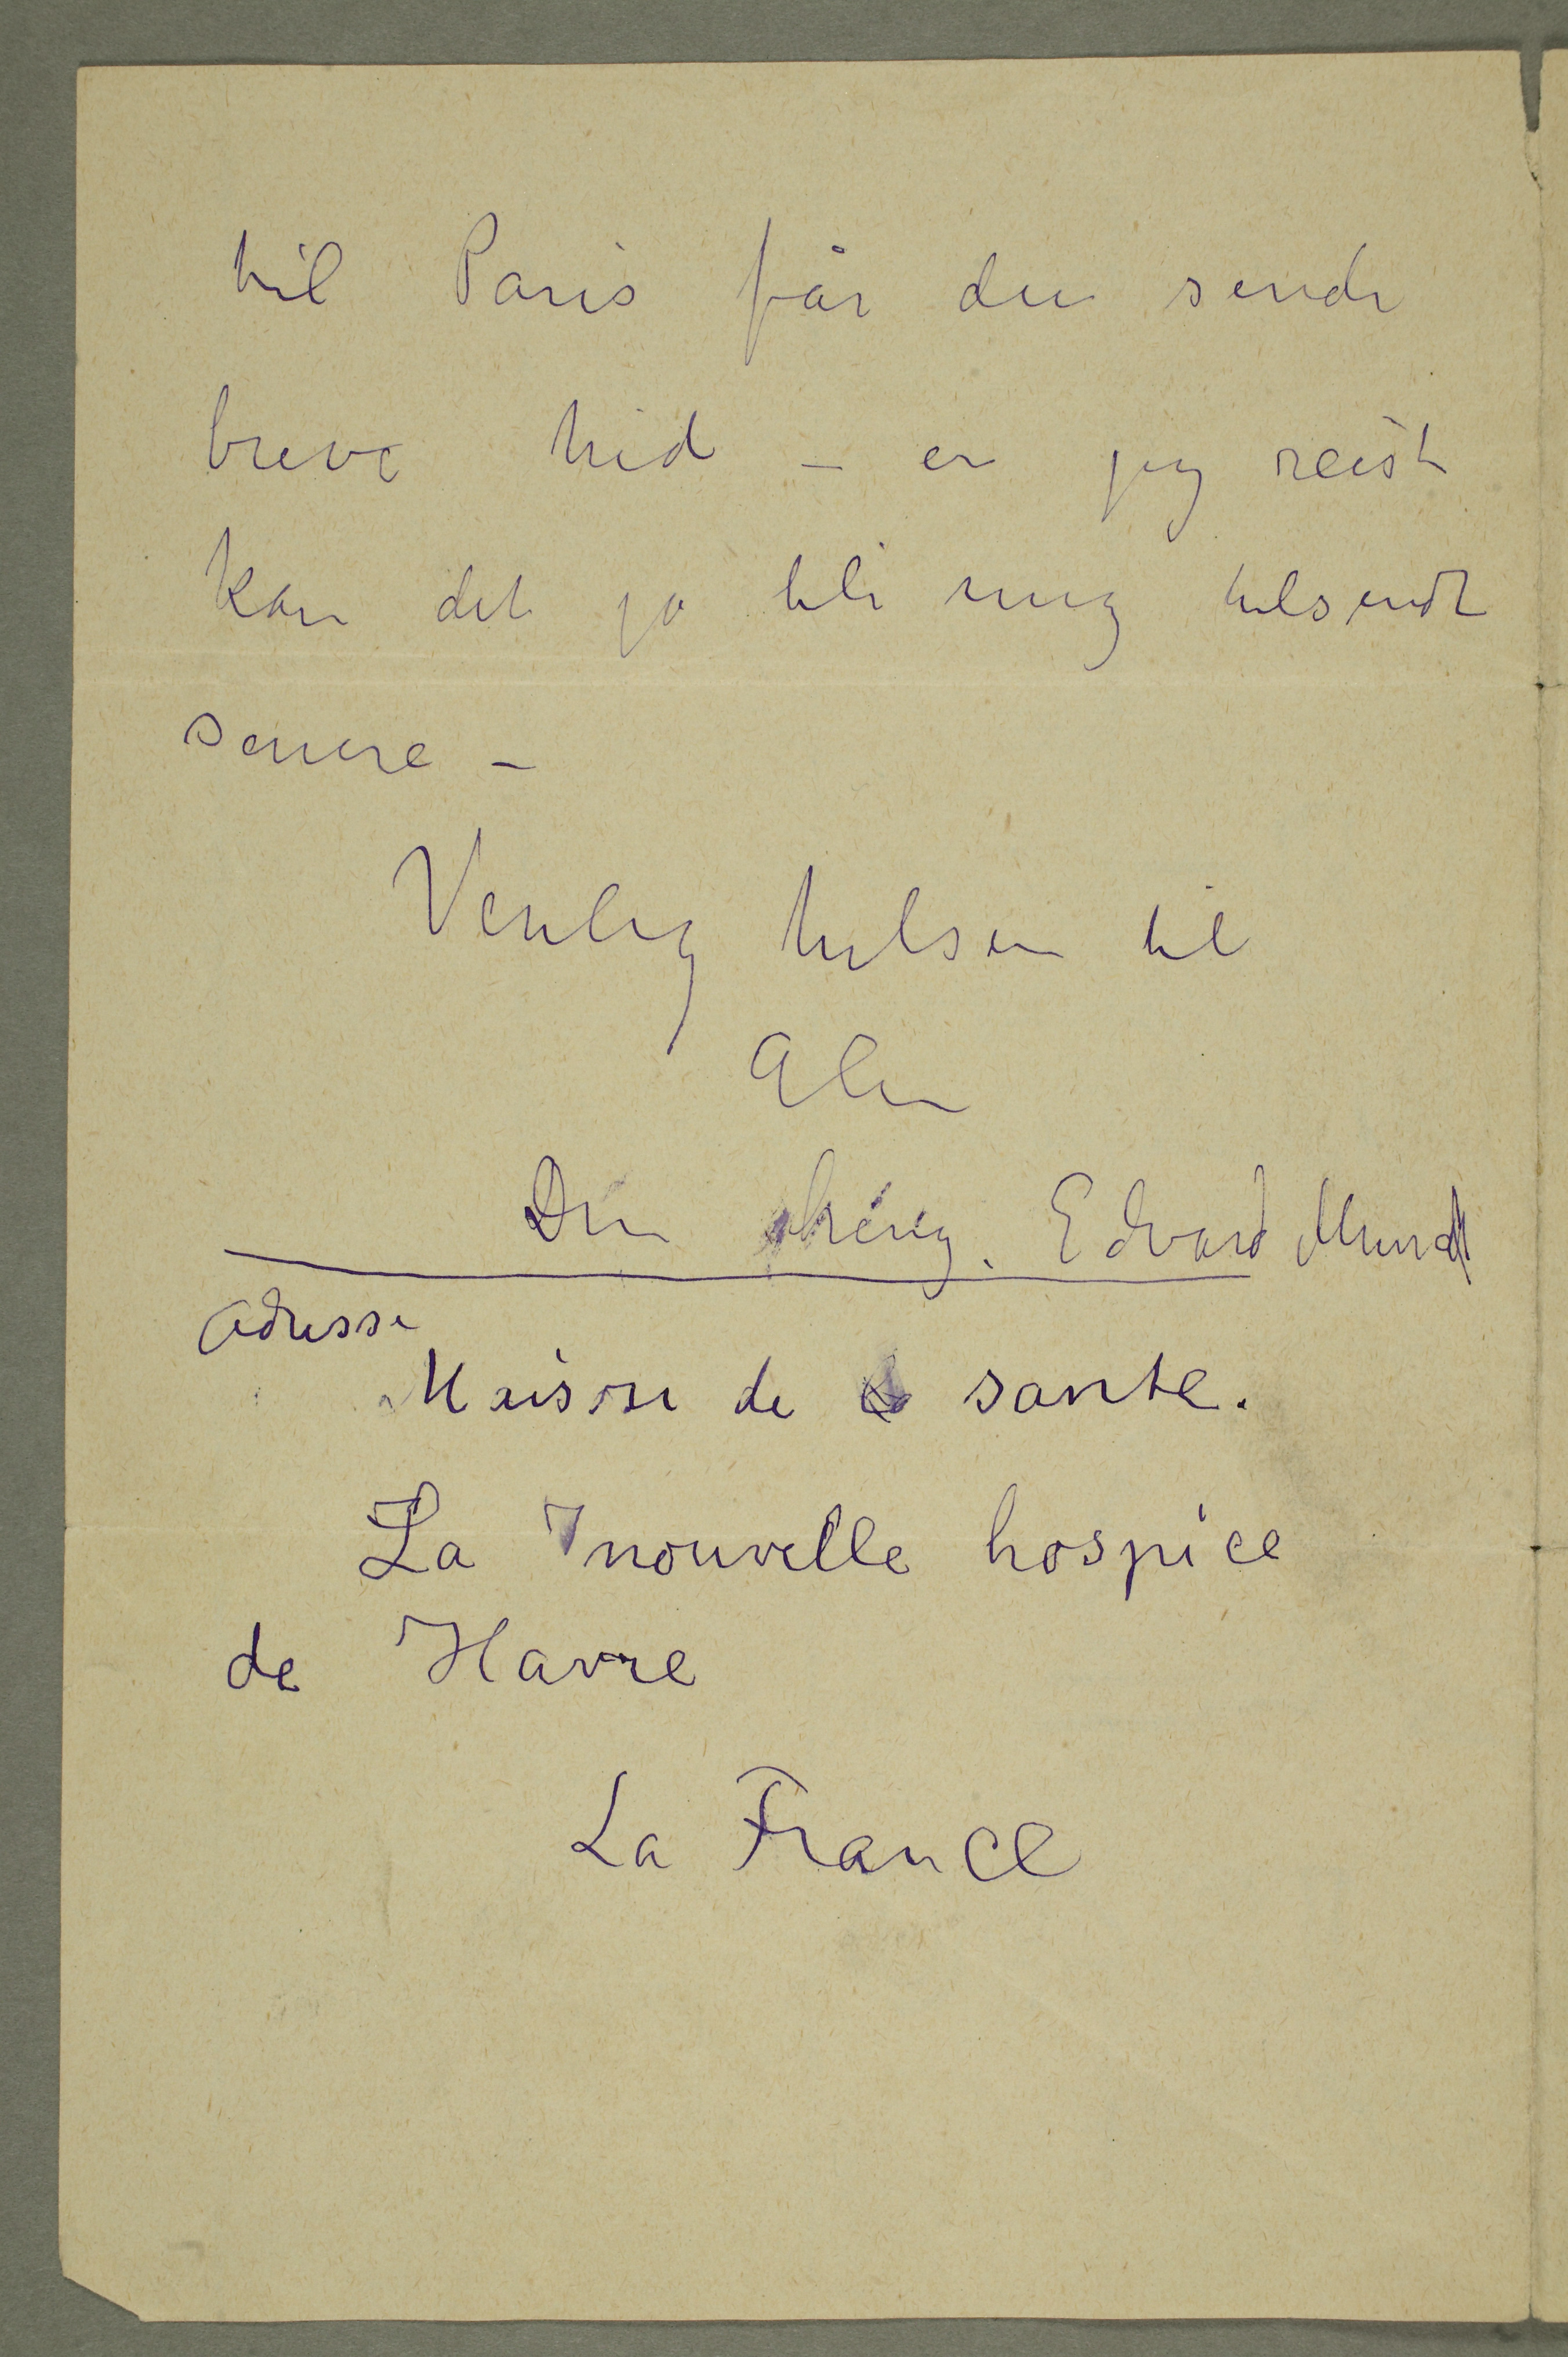 til Paris får du sende
breve hid – er jeg reist
kan det jo bli mig tilsendt
senere –
Venlig hilsen til
Alle
Din hengiv. Edvard Munch
Adresse
Maison de sante.
La nouvelle hospice
de Havre
La France